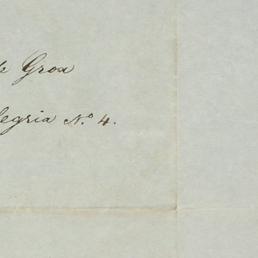 de Groa
legria N.o 4.